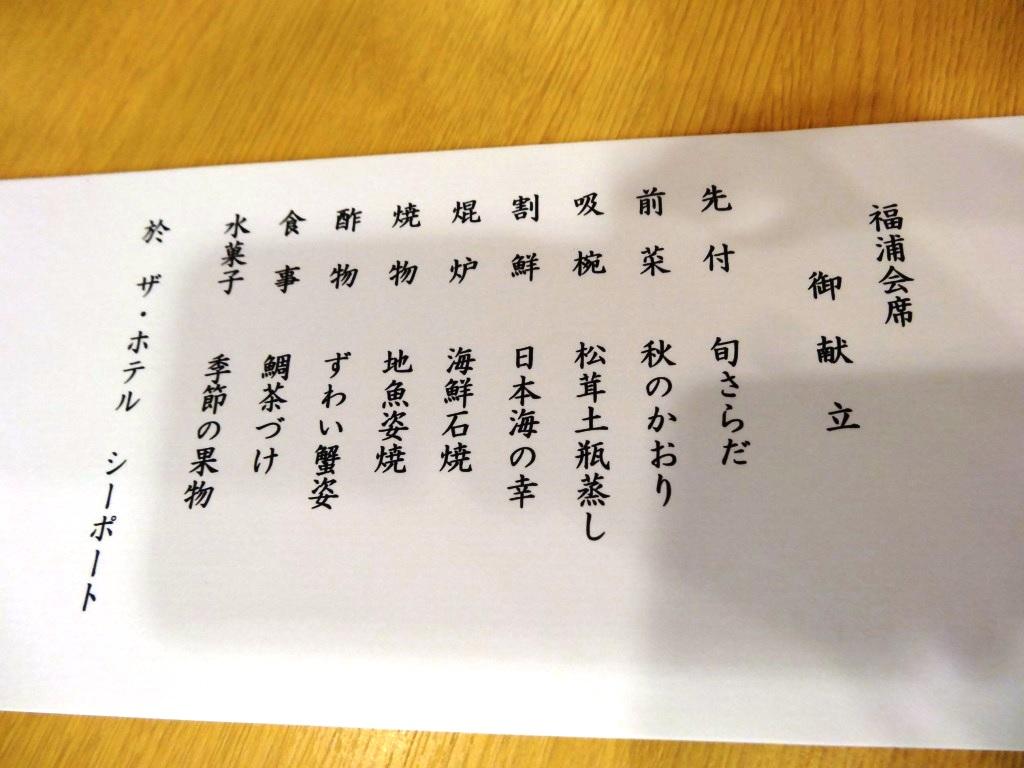 福浦会席
御献立
先付 旬さらだ
前菜 秋のかおり
吸椀 松茸土瓶蒸し
割鮮 日本海の幸
焜炉 海鮮石焼
焼物 地魚姿焼
酢物 ずわい蟹姿
食事 鯛茶づけ
水菓子 季節の果物
於 ザ・ホテル シーポート